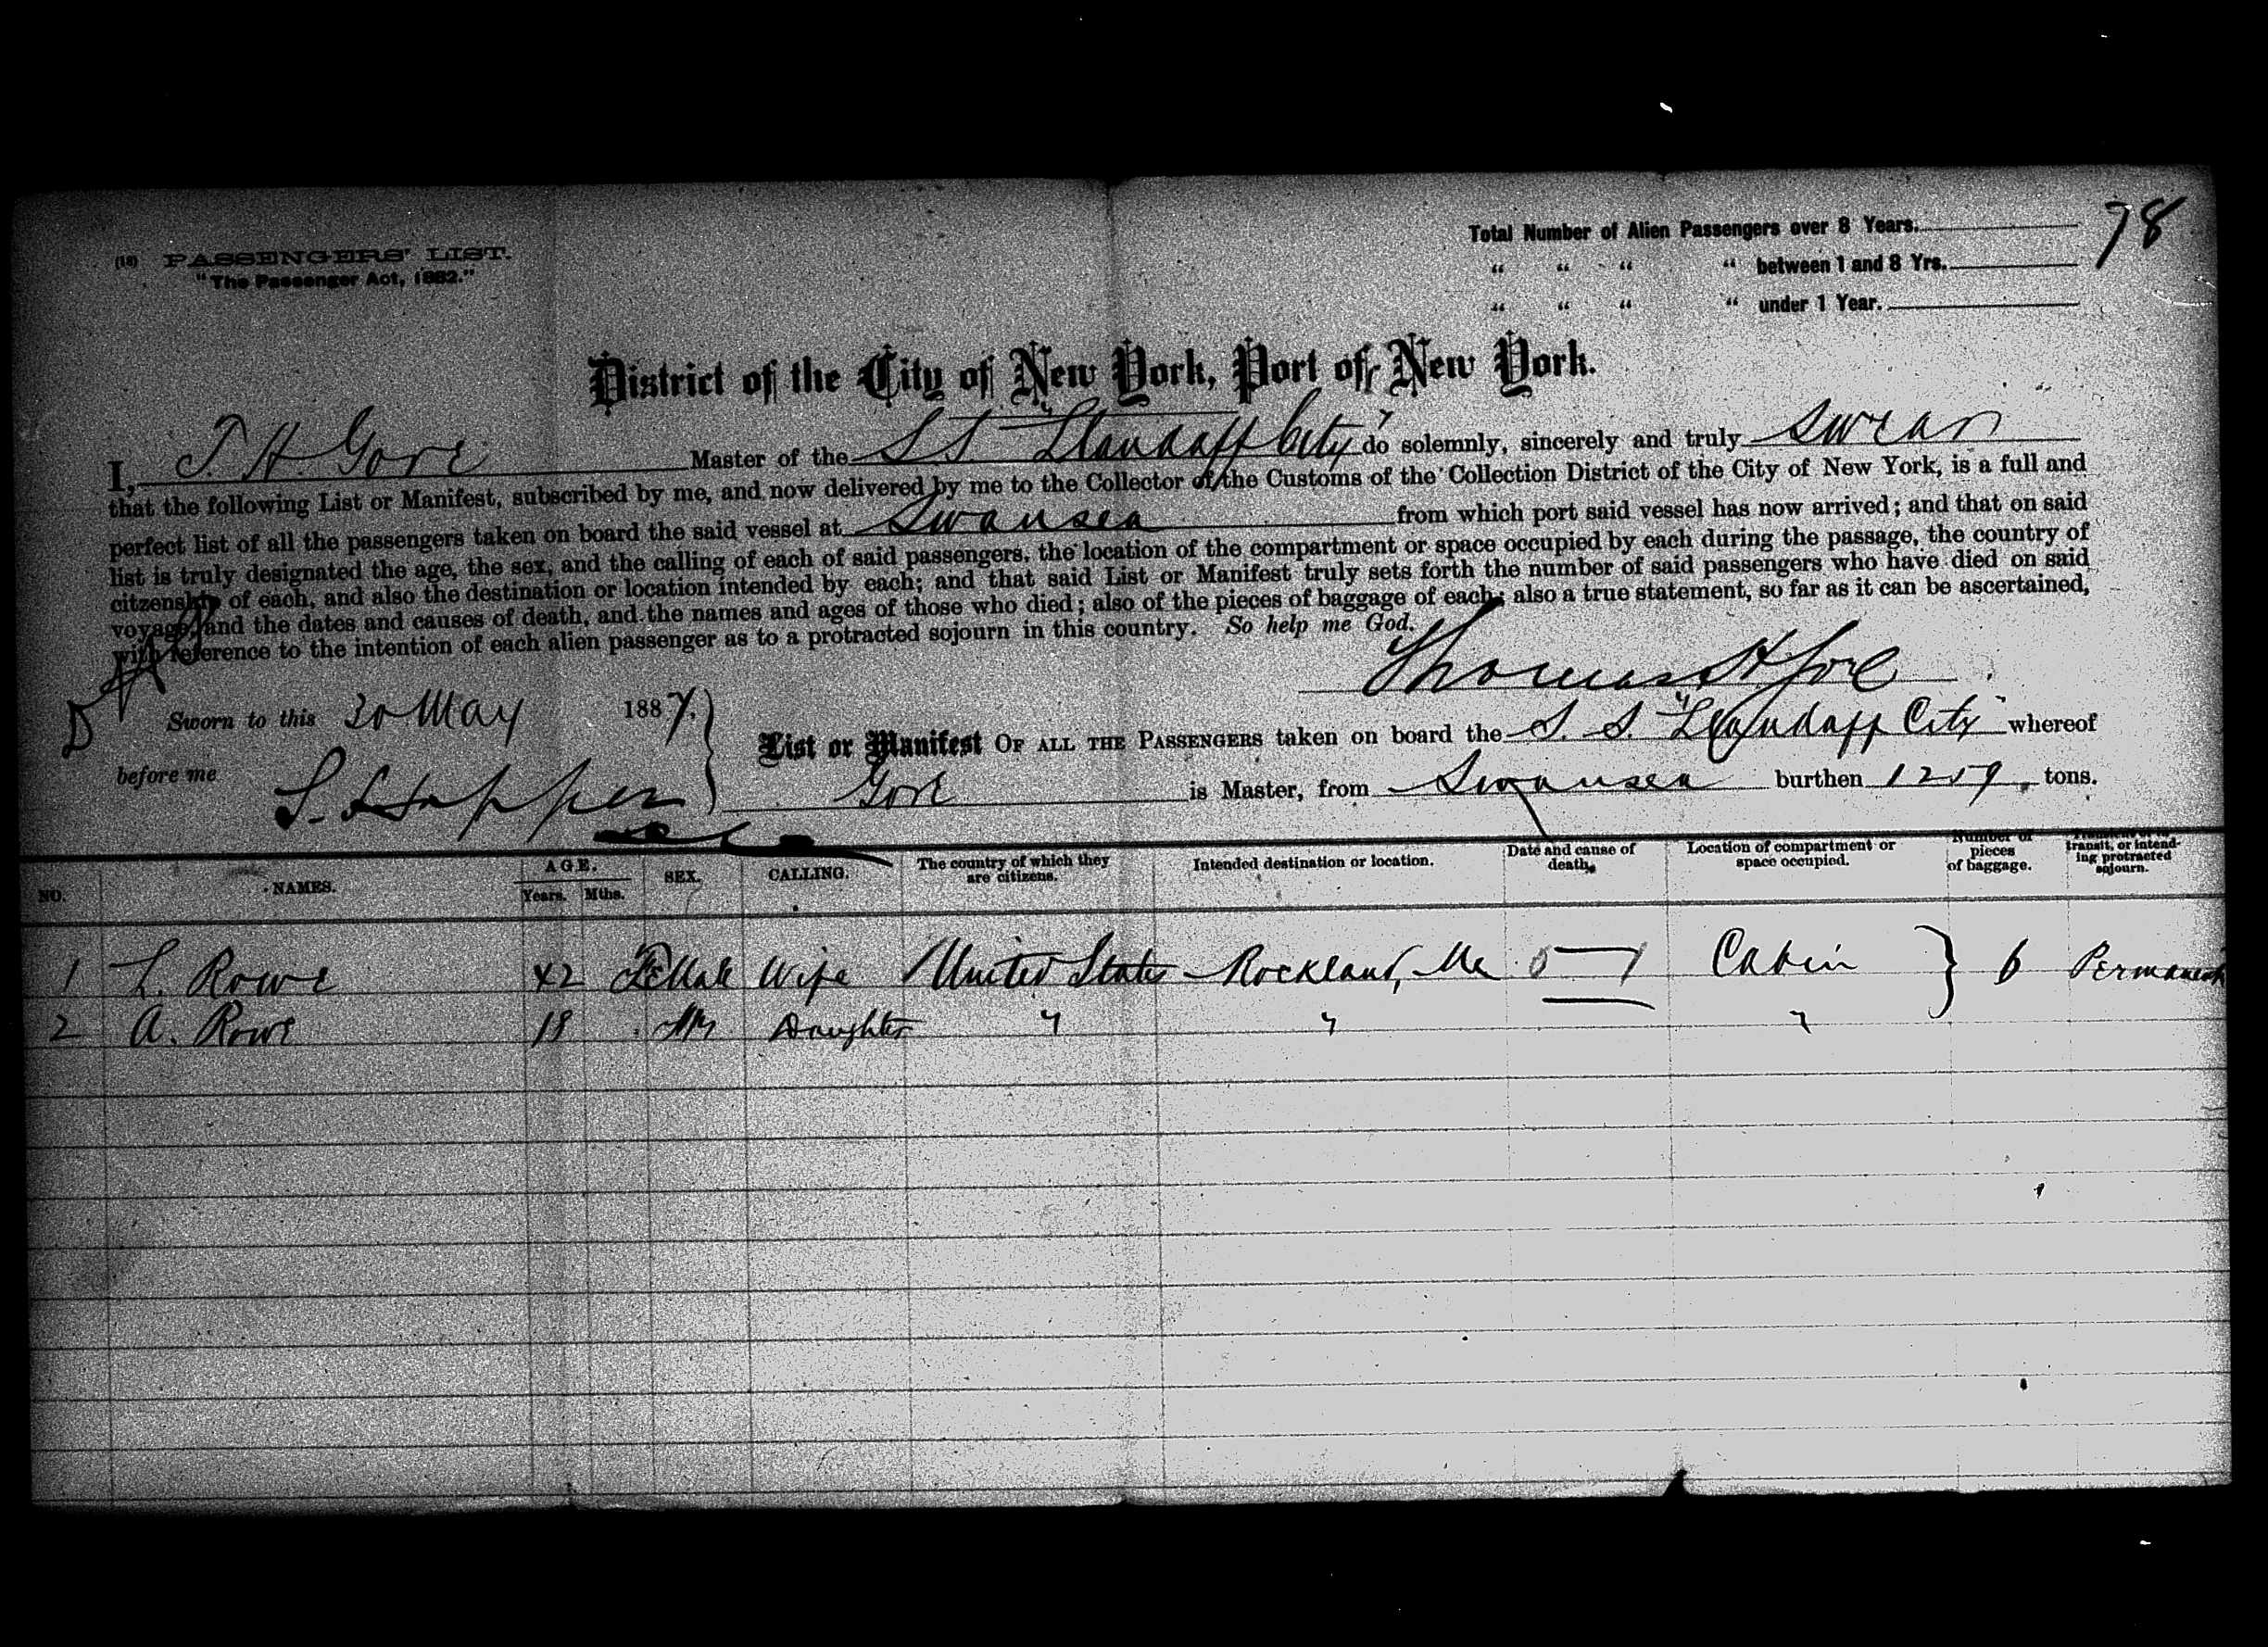 78
Total Number of Alien Passengers over 8 Years.
(18) PASSENGERS' LIST.
"The Passenger Act, 1882."
" " " " between 1 and 8 Yrs.
" " " " under 1 Year.
District of the City of New York, Port of New York.
I, T. H. Gore Master of the S S "Llandaff City" do solemnly, sincerely and truly swear
that the following List or Manifest, subscribed by me, and now delivered by me to the Collector of the Customs of the Collection District of the City of New York, is a full and
perfect list of all the passengers taken on board the said vessel at Swansea from which port said vessel has now arrived; and that on said
list is truly designated the age, the sex, and the calling of each of said passengers, the location of the compartment or space occupied by each during the passage, the country of
citzenship of each, and also the destination or location intended by each; and that said List or Manifest truly sets forth the number of said passengers who have died on said
voyage, and the dates and causes of death, and the names and ages of those who died; also of the pieces of baggage of each; also a true statement, so far as it can be ascertained,
with reference to the intention of each alien passenger as to a protracted sojourn in this country. So help me God.
Thomas H Gore
Sworn to this 20 May 1887.
List or Manifest OF ALL THE PASSENGERS taken on board the S. S. "Llandaff City" whereof
before me
Gore is Master, from Swansea burthen 1259 tons.
NO. NAMES. AGE. Years. Mths. SEX. CALLING. The country of which they are citizens. Intended destination or location. Date and cause of death. Location of compartment or space occupied. Number of pieces of baggage. transit, or intending protracted sojourn.
1 L. Rowe 42 Female Wife United States Rockland, Me Cabin } 6 Permanent
2 A. Rowe 18 Daughter " " "